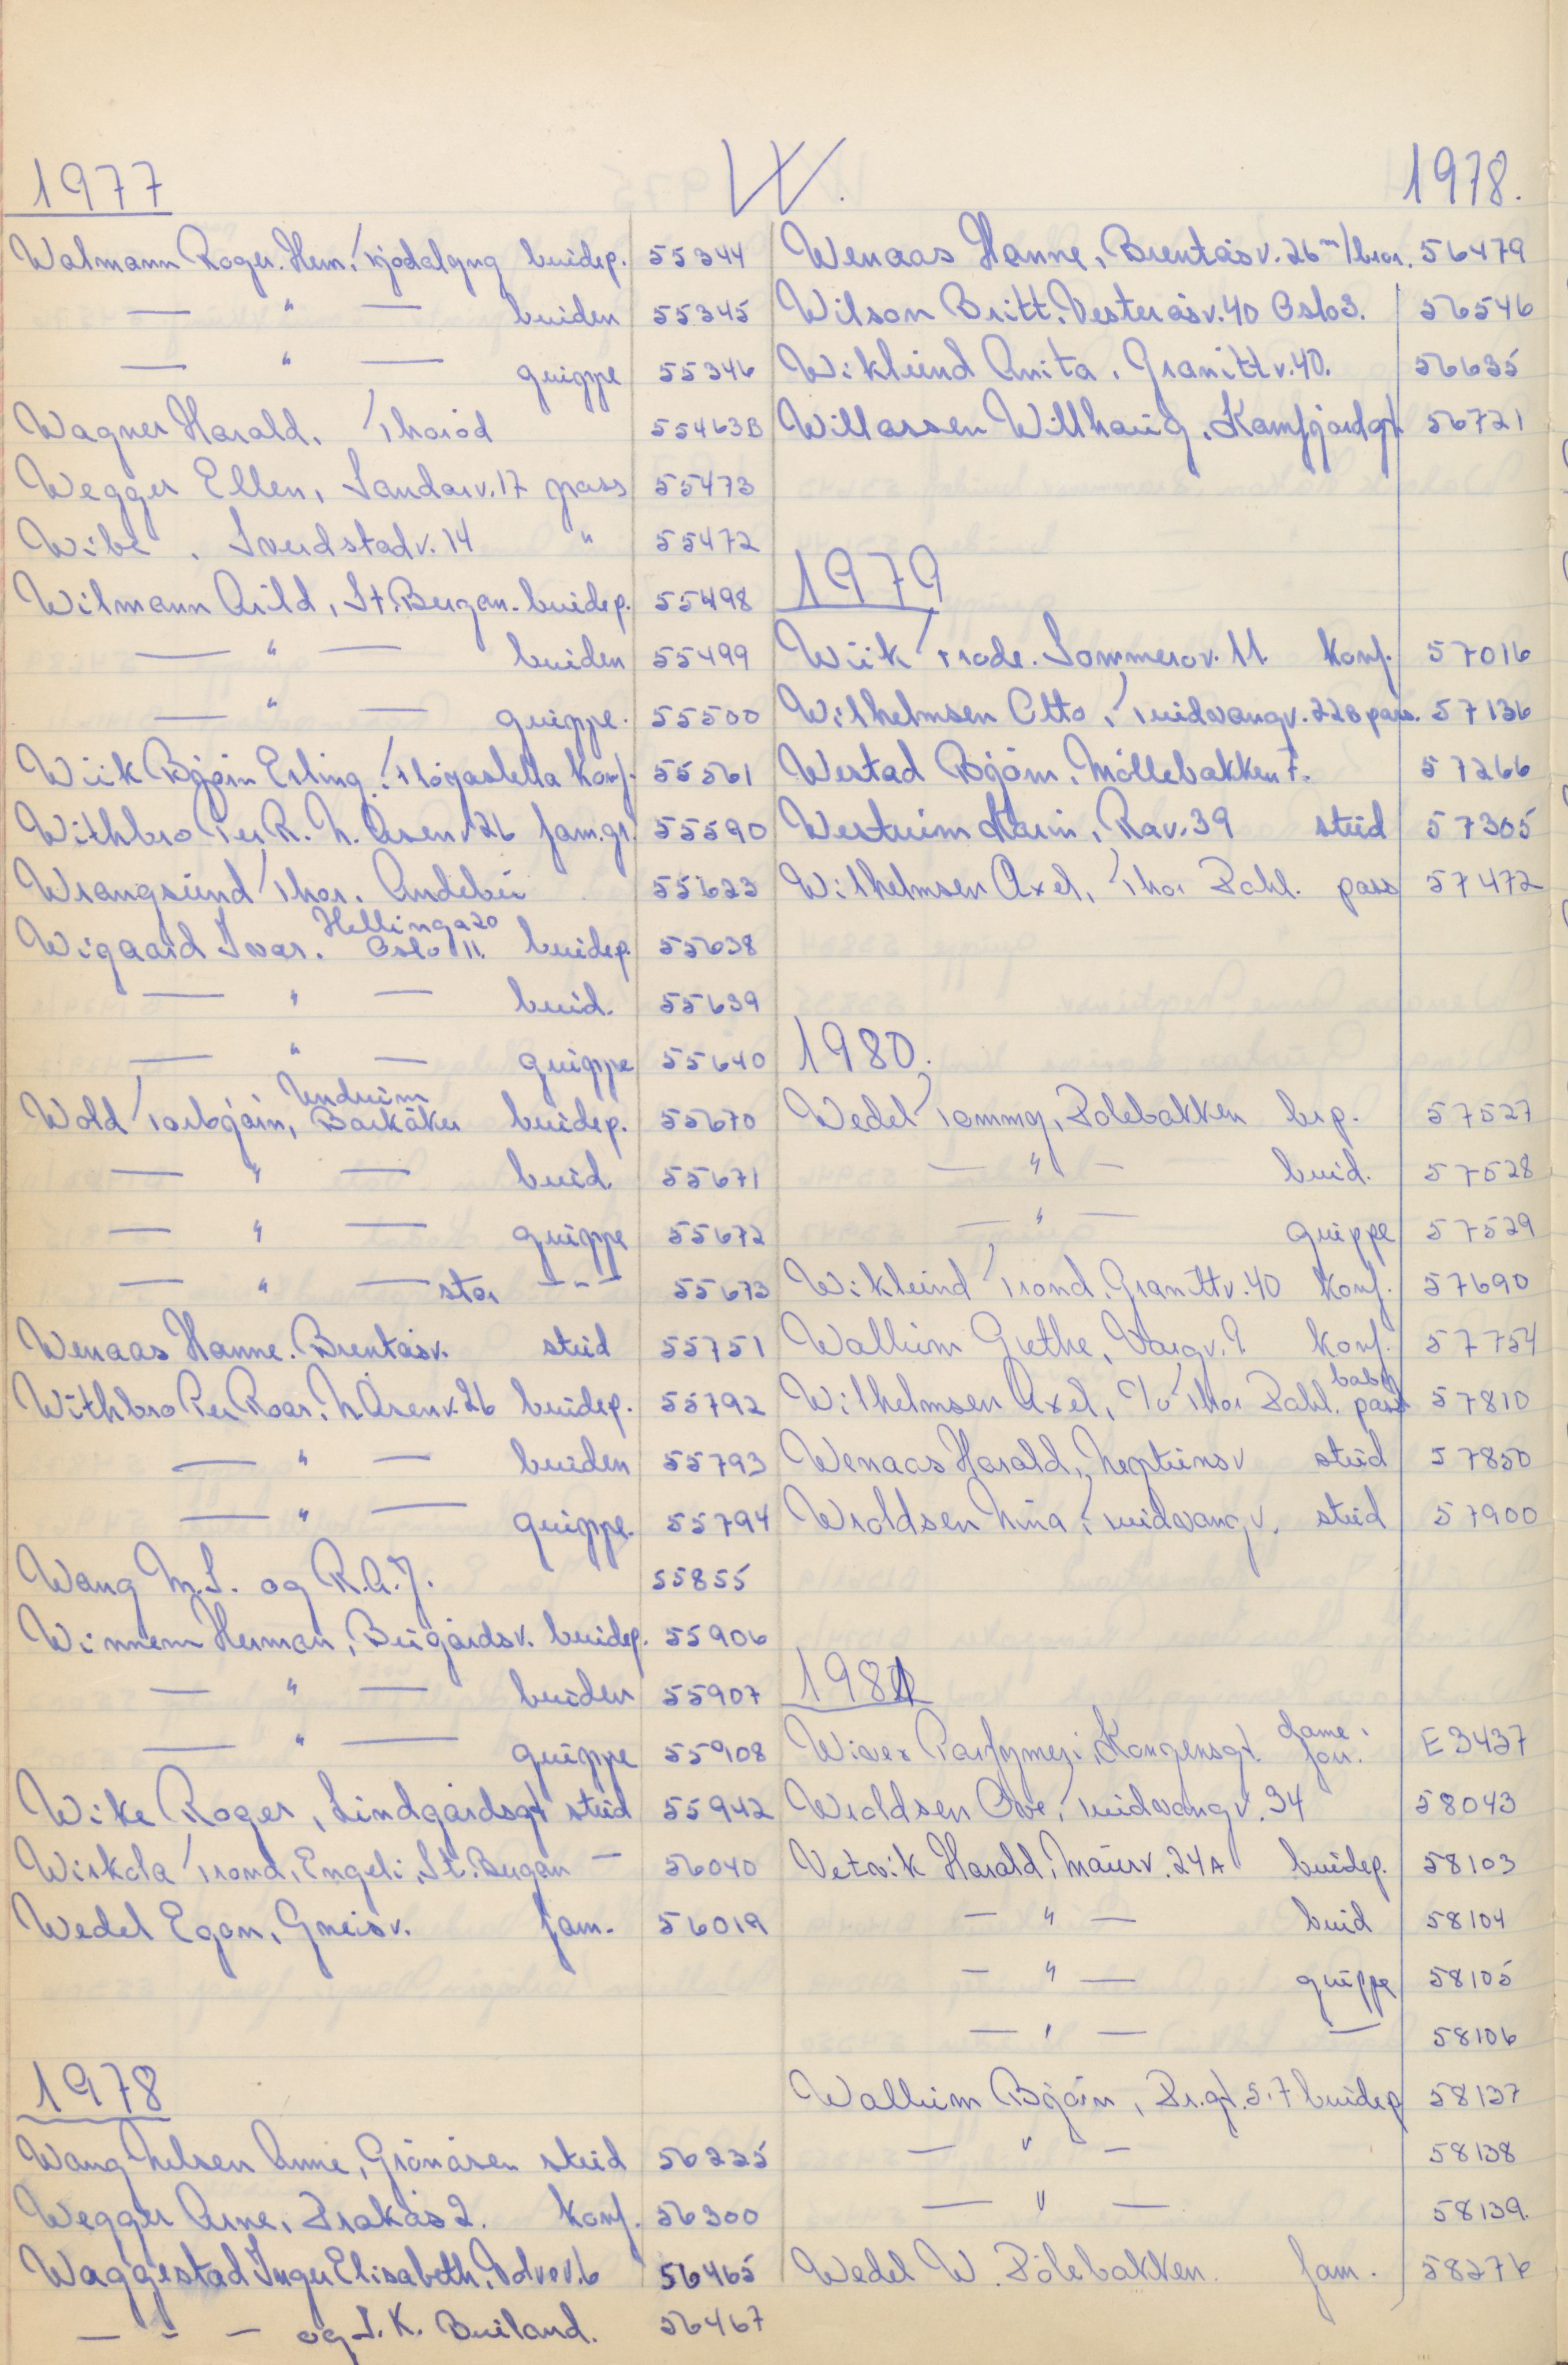 W.
1977
Walmann Roger. Hem. Fjodalgng brudep. 55344
— " — bruden 55345
— " — gruppe 55346
Wagner Harald. Thorød 55463B
Wegger Ellen, Sandarv. 17 pass 55473
Wibe . Sverdstadv. 14 " 55472
Wilmann Arild, St. Bergan. brudep. 55498
— " — bruden 55499
— " — gruppe. 55500
Wiik Bjørn Erling. Flögasletta Konf. 55561
Withbro Per R. N. Åsenv 26 fam.gr. 55590
Wrangsund Thor. Andebu 55623
Wigaard Ivar. Hellinga 20 Oslo 11. brudep. 55638
— " — brud. 55639
— " — gruppe 55640
Wold Torbjørn, Undrum Barkåker brudep. 55670
— " — brud. 55671
— " — gruppe 55672
— " — stor — " — 55673
Wenaas Hanne. Brentåsv. stud 55751
Withbro Per Roar. N. Åsenv. 26 brudep. 55792
— " — bruden 55793
— " — gruppe. 55794
Wang M.S. og R.A.J. 55855
Winnem Herman, Bugårdsv. brudep. 55906
— " — bruden 55907
— " — gruppe 55908
Wike Roger, Lindgårdsgt stud 55942
Wirkola Trond, Engeli, St. Bergan — 56040
Wedel Egon, Gneisv. fam. 56019
1978
Wang Nilsen Anne, Grönåsen stud 56235
Wegger Arne, Frakås 2. konf. 56300
Waggestad Inger Elisabeth. 6 56465
— " — og I.K. Bruland. 56467
1978.
Wenaas Hanne, Brentåsv. 26 m/bror. 56479
Wilson Britt. Vesteråsv. 40 Oslo 3. 56546
Wiklund Anita. Granittv. 40. 56635
Willassen Willhaug. Kamfjordgt 56721
1979
Wiik Frode. Sommerov. 11. konf. 57016
Wilhelmsen Otto, Furidvangv. 22B pass. 57136
Westad Bjørn. Möllebakken 7. 57266
Westrum Karin, Rav. 39 stud 57305
Wilhelmsen Axel, Thor Dahl. pass 57472
1980.
Wedel Tommy, Solebakken brp. 57527
— " — brud. 57528
— " — gruppe 57529
Wiklund Trond, Granittv. 40 konf. 57690
Wallum Grethe, Vargv. 2 konf. 57754
Wilhelmsen Axel, Thor Dahl. baby pass 57810
Wenaas Harald, Neptunsv stud 57850
Wroldsen Nina, Furidvangv. stud 57900
1981
Wiver Parfymeri, Kongensgt. dame. E3437
Wroldsen Ove, Furidvangv. 34 58043
Vetvik Harald, Maurv. 24A brudep. 58103
— " — brud 58104
— " — gruppe 58105
— " — — 58106
Wallum Bjørn, Dr.gt. 5-7 brudep 58137
— " — 58138
— " — 58139.
Wedel W. Sölebakken. fam. 58276